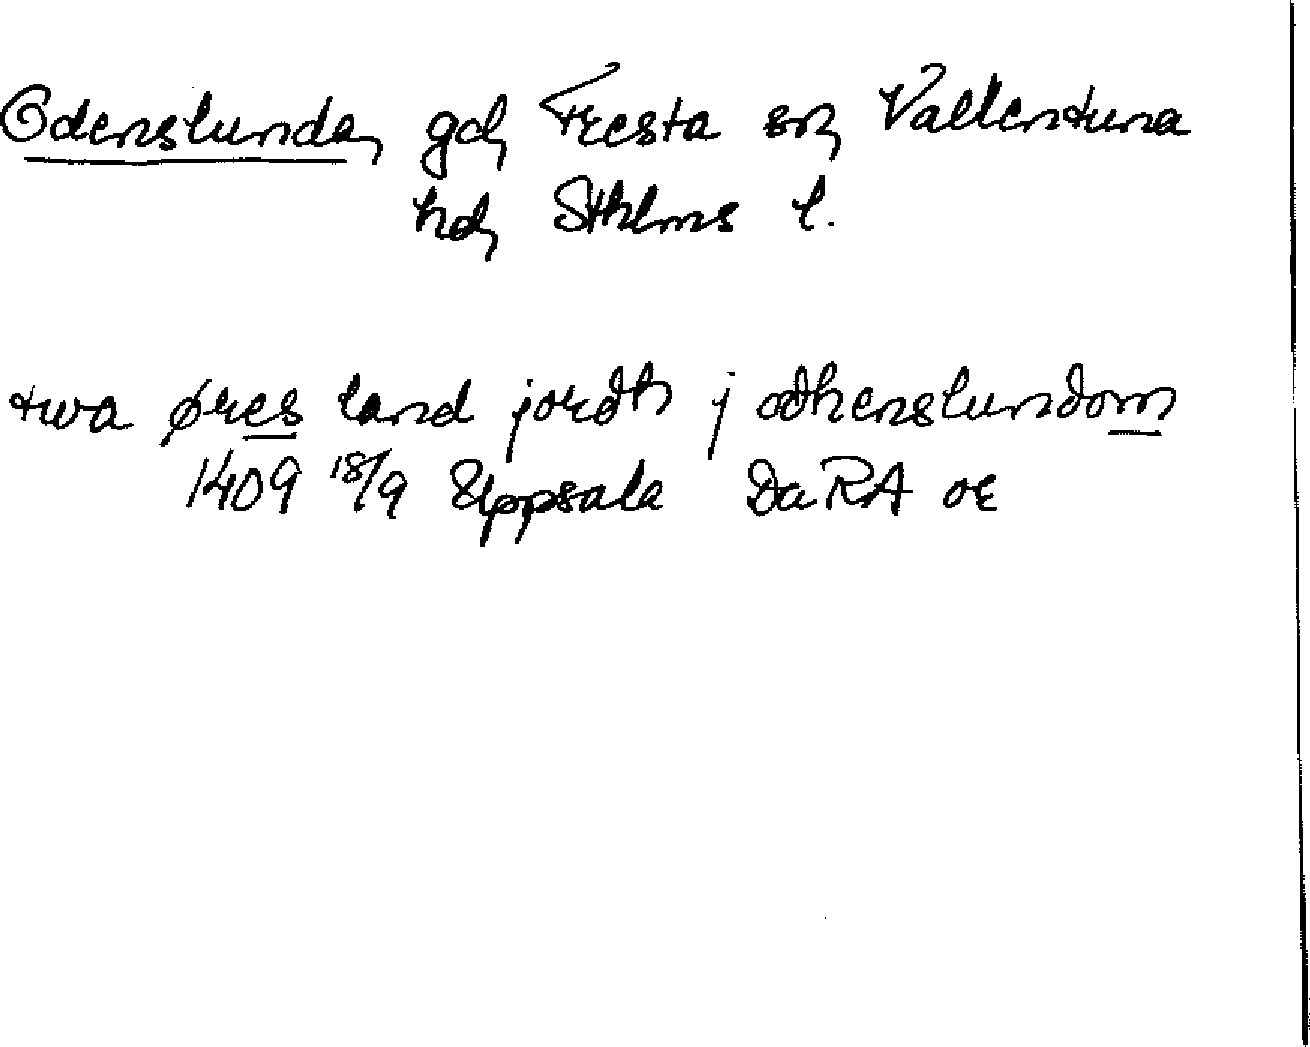 Odenslunda, gd, Fresta sn, Vallentuna
hd, Sthlms l.
twa øres land jordh j odhenslundom
1409 18/9 Uppsala DaRA or